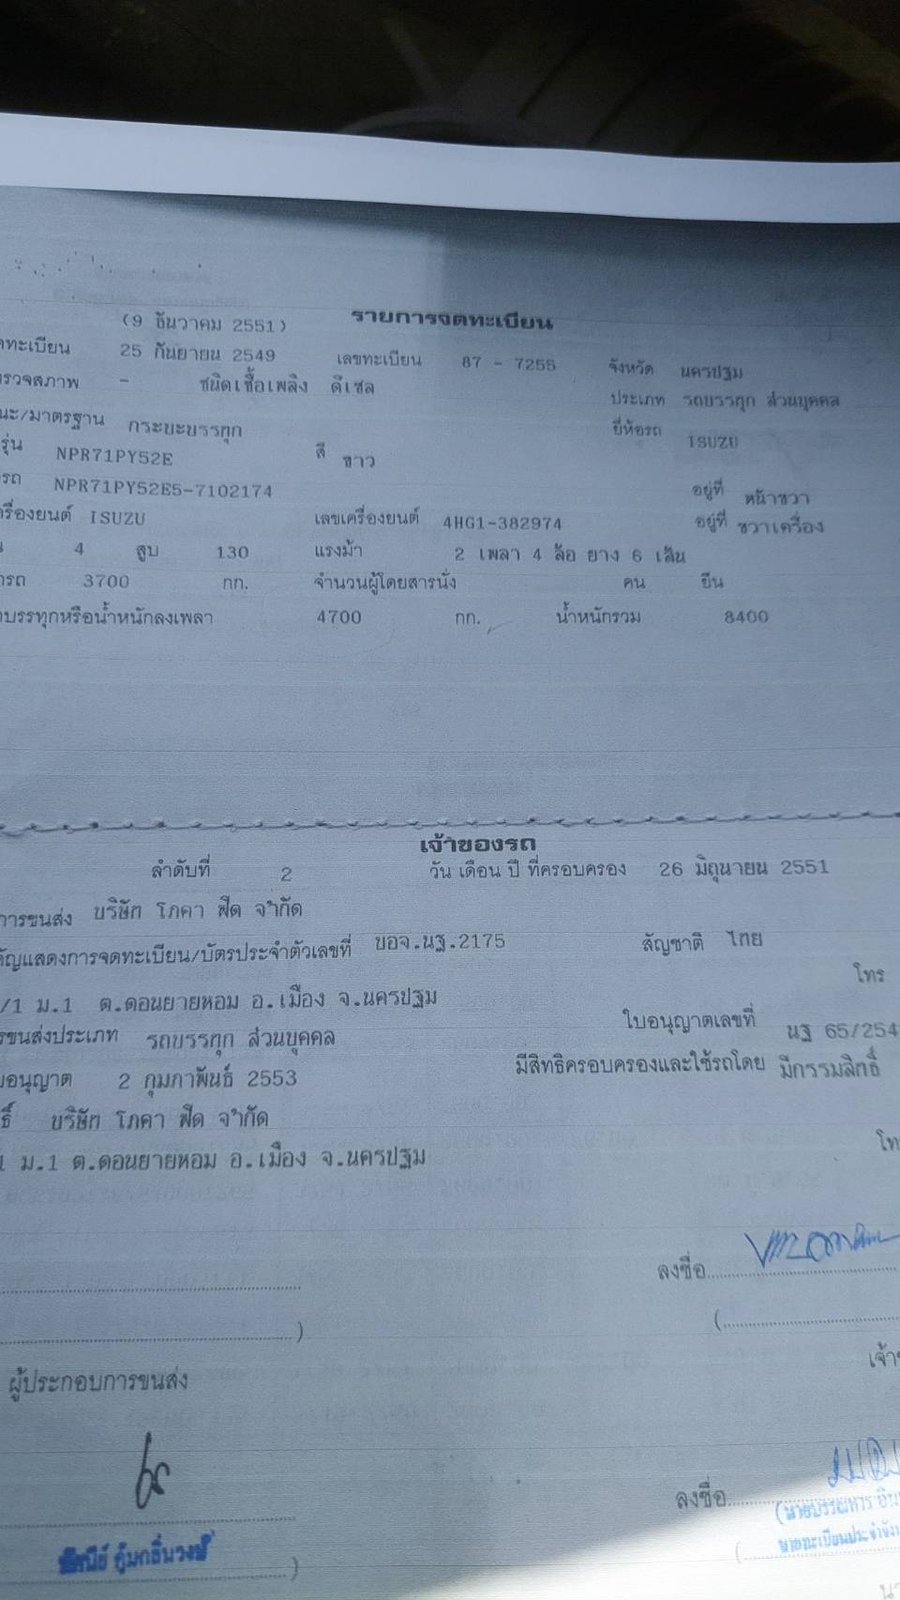 (9 ธันวาคม 2551) รายการจดทะเบียน
ทะเบียน 25 กันยายน 2549 เลขทะเบียน 87 - 7255 จังหวัด นครปฐม
รวจสภาพ - ชนิดเชื้อเพลิง ดีเซล ประเภท รถบรรทุก ส่วนบุคคล
นะ/มาตรฐาน กระบะบรรทุก ยี่ห้อรถ ISUZU
รุ่น NPR71PY52E สี ขาว
รถ NPR71PY52E5-7102174 อยู่ที่ หน้าขวา
ครื่องยนต์ ISUZU เลขเครื่องยนต์ 4HG1-382974 อยู่ที่ ขวาเครื่อง
4 สูบ 130 แรงม้า 2 เพลา 4 ล้อ ยาง 6 เส้น
รถ 3700 กก. จำนวนผู้โดยสารนั่ง คน ยืน
บรรทุกหรือน้ำหนักลงเพลา 4700 กก. น้ำหนักรวม 8400
เจ้าของรถ
ลำดับที่ 2 วัน เดือน ปี ที่ครอบครอง 26 มิถุนายน 2551
การขนส่ง บริษัท โภคา ฟีด จำกัด
คัญแสดงการจดทะเบียน/บัตรประจำตัวเลขที่ บอจ.นฐ.2175 สัญชาติ ไทย
โทร
/1 ม.1 ต.ดอนยายหอม อ.เมือง จ.นครปฐม
รขนส่งประเภท รถบรรทุก ส่วนบุคคล ใบอนุญาตเลขที่ นฐ 65/254
บอนุญาต 2 กุมภาพันธ์ 2553 มีสิทธิครอบครองและใช้รถโดย มีกรรมสิทธิ์
ธิ์ บริษัท โภคา ฟีด จำกัด
1 ม.1 ต.ดอนยายหอม อ.เมือง จ.นครปฐม โท
ลงชื่อ
( )
ผู้ประกอบการขนส่ง เจ้า
ลงชื่อ
(นายบรรยหาร อิน
นายทะเบียนประจำจัง